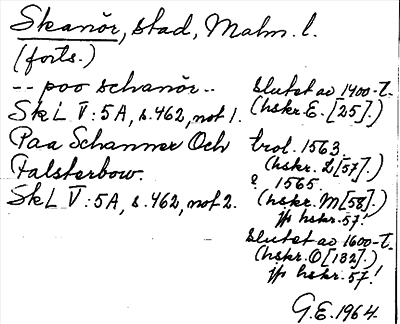 Skanör, stad, Malm. l.
(forts.)
-- poo schanör -- slutet av 1400-t.
SkL V:5A, s.462, not 1. (hskr. E. [25].)
Paa Schanner Och trol. 1563
(hskr. L[57].)
Falsterbow. ? 1565
SkL V:5A, s.462, not 2. (hskr. M[58].)
jfr hskr. 57!
slutet av 1600-t.
(hskr. O[182].)
jfr hskr. 57!
G.E. 1964.